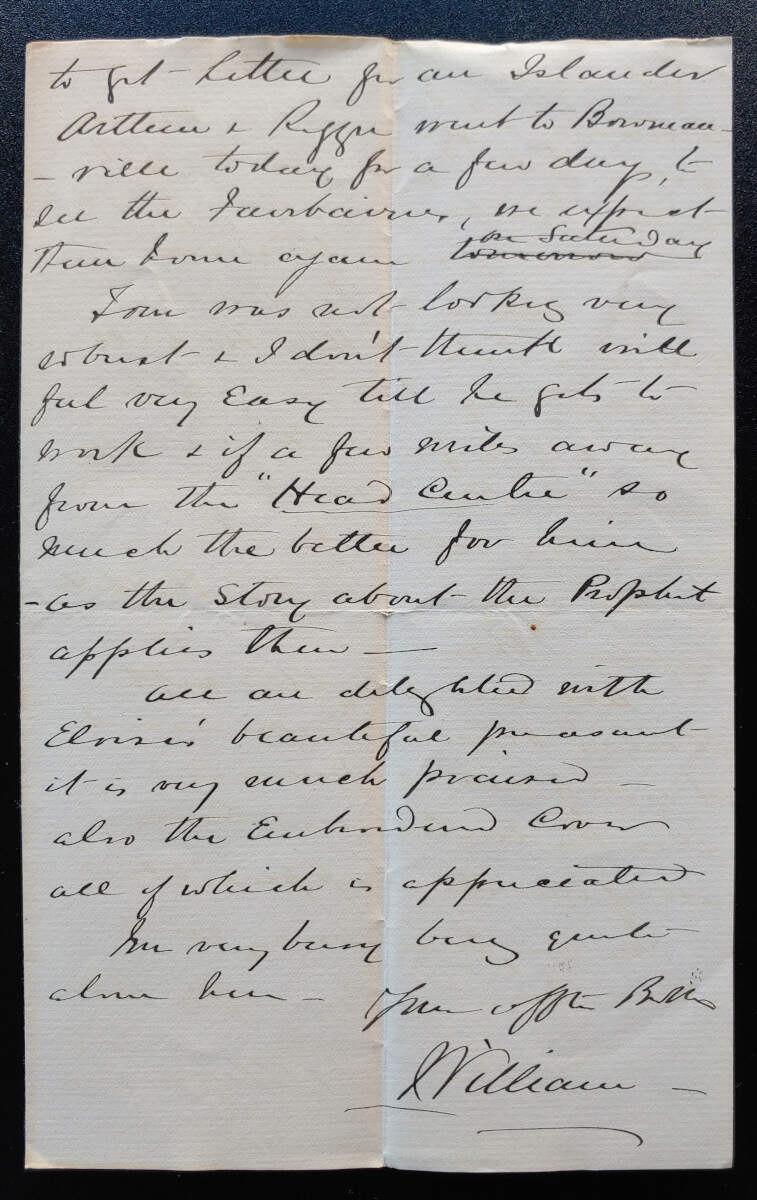 to get better for an Islander
Arthur & went to Bowman-
-ville today for a few days, to
see the Fairbairns, we expect
them home again tomorrow on Saturday
Tom was not looking very
robust & I don't think will
feel very Easy till he gets to
work & if a few miles away
from the "Head Centre" so
much the better for him
- as the Story about the Prophet
applies then —
all are delighted with
Eloise's beautiful present
it is very much praised —
also the Embroidered Cover
all of which is appreciated
I'm very busy being quite
alone here — Your afftn
William —